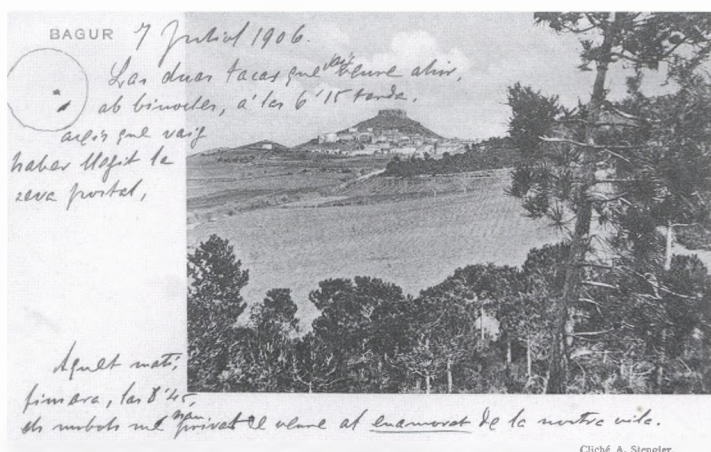 BAGUR 7 Juliol 1906.
Las duas tacas que vaij veure ahir,
ab binocles, á las 6'15 tarda.
aixis que vaig
haber llegit la
seva postal,
Aquet matí,
fins ara, las 8'45,
els nubols me han privat de veure al enamorat de la nostra vila.
Cliché A. Stengler.